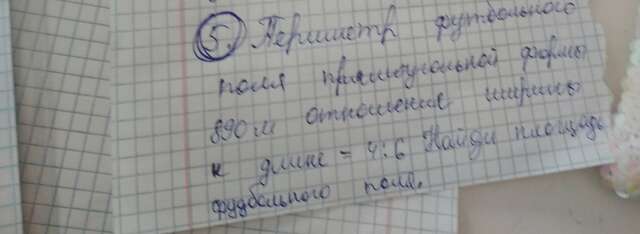 5. Периметр футбольного
поля прямоугольной формы
890 м отношение ширины
к длине = 4:6 Найди площадь
фудбольного поля.